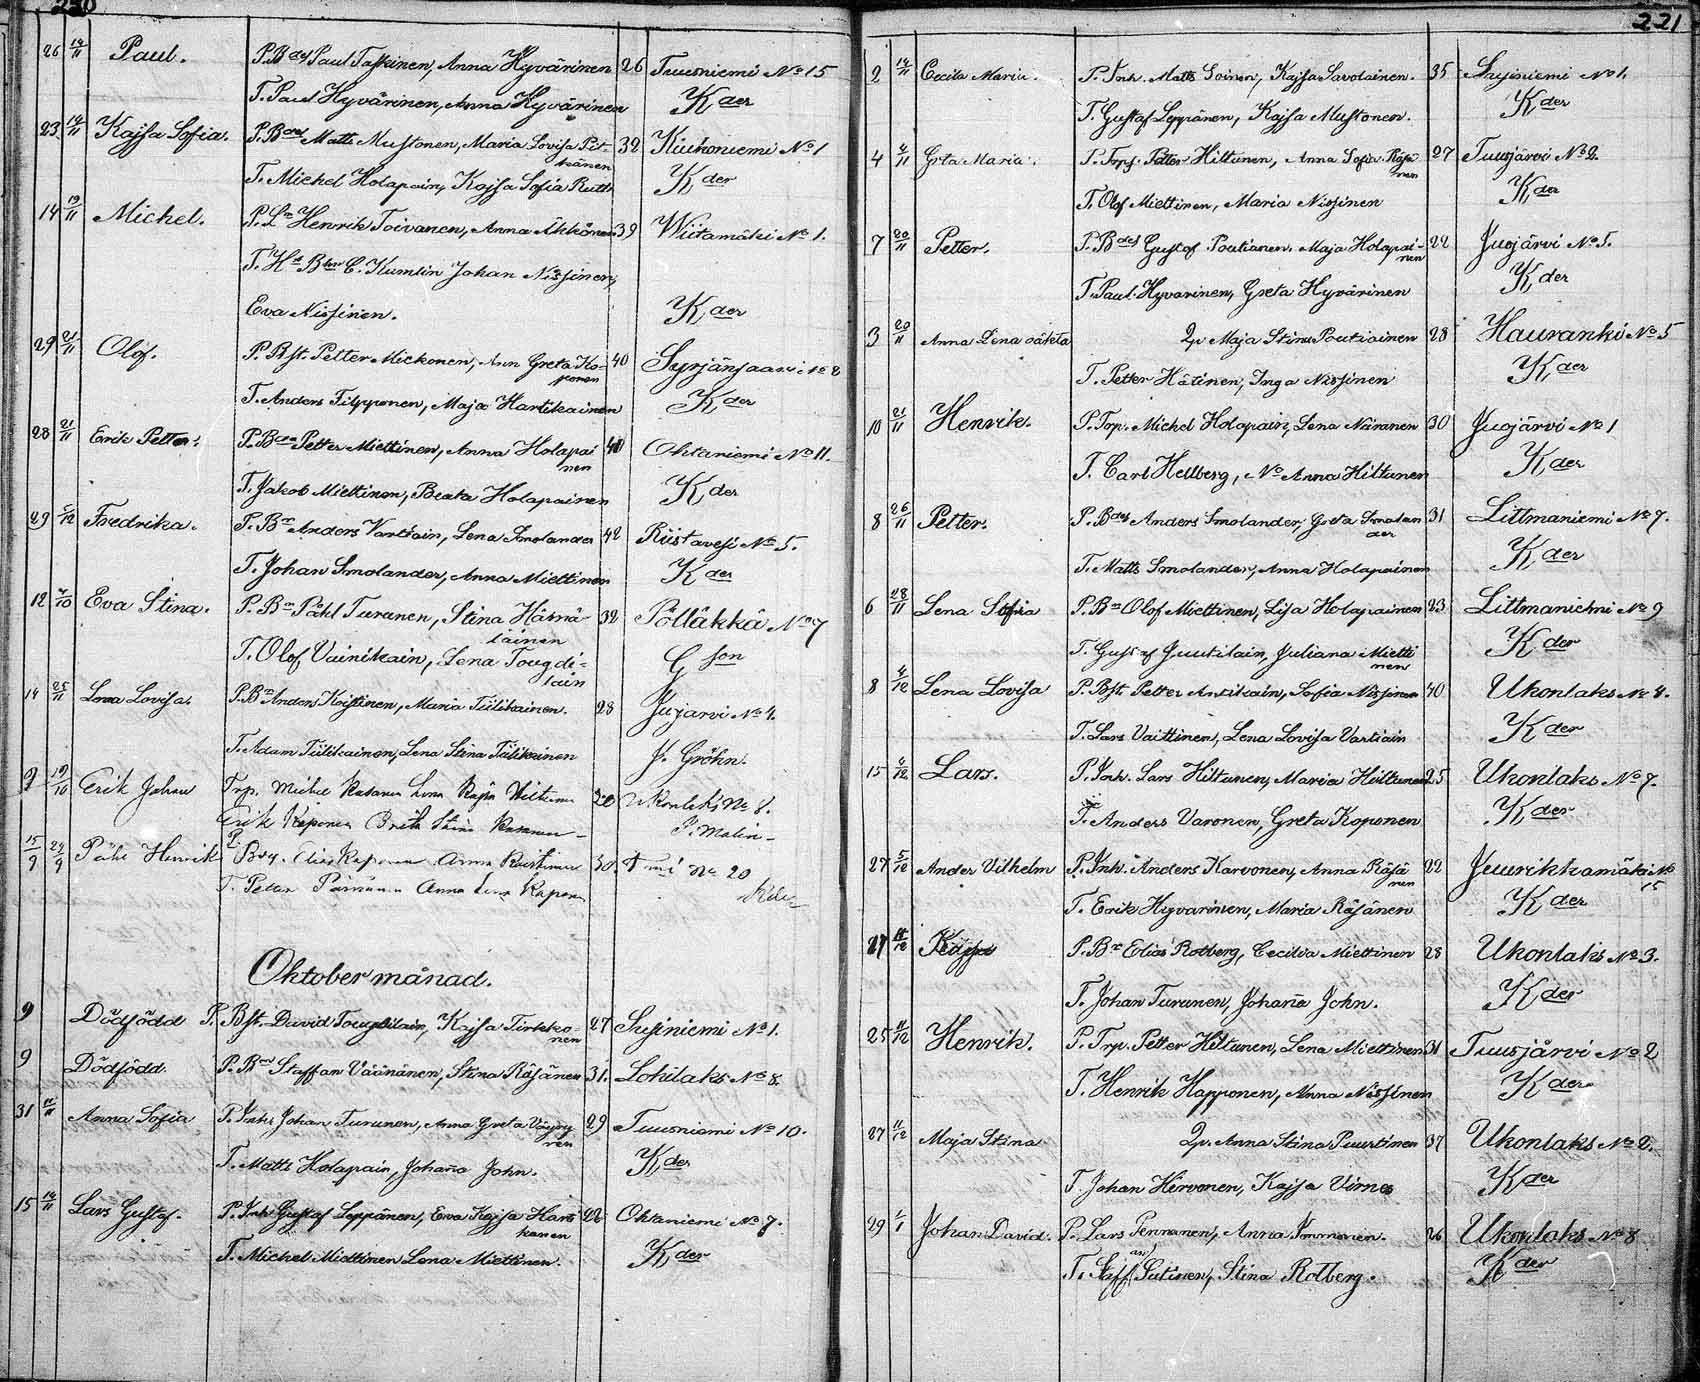 220
26 14/11 Paul. P. Bdes Paul Taskinen, Anna Hyvärinen 26 Tuusniemi No 15
T. Paul Hyvärinen, Anna Hyvärinen Kder
23 14/11 Kajsa Sofia. P. Bdes Matts Mustonen, Maria Lovisa Pit- 32 Kiukoniemi No 1
känen
T. Michel Holapain, Kajsa Sofia Ruth Kder
14 19/11 Michel. P. Ln Henrik Toivanen, Anna Ikkönen 39 Wiitamäki No 1.
T. Hd Bbn C. Kumlin Johan Nissinen,
Eva Nissinen. Kder
29 21/11 Olof. P. Bst. Petter Mickonen, Ann Greta Ko- 40 Syrjänsaari No 8
ponen
T. Anders Filpponen, Maja Hartikainen Kder
28 21/11 Erik Petter. P. Bden Petter Miettinen, Anna Holapai 40 Ohtaniemi No 11.
nen
T. Jakob Miettinen, Beata Holapainen Kder
29 /12 Fredrika. P. Bn Anders Vartiain, Lena Smolander 42 Riistavesi No 5.
T. Johan Smolander, Anna Miettinen Kder
12 /10 Eva Stina. P. Bn Påhl Turunen, Stina Hämä- 32 Pölläkkä No 7
läinen
T. Olof Vainikain, Lena Tougdi- Gson
lain
14 25/11 Lena Lovisa. P. Bn Anders Koistinen, Maria Tiilikainen. 28 Jujarvi No 4.
T. Adam Tiilikainen, Lena Stina Tiilikainen J. Gröhn.
9 19/10 Erik Johan Trp. Michel Kasanen Lena Kajsa Hiltunen 20 Ukonlaks No 8.
Erik Koponen Brita Stina Kasanen J. Malin
15/9 24/9 Påhl Henrik P. Bdr. Elias Koponen Anna Ruistinen 30. No 20
T. Petter Anna Lena Koponen Kder
Oktober månad.
9 Dödfödd P. Bst. David Tougdilain, Kajsa Tirkko- 27 Susiniemi No 1.
nen
9 Dödfödd. P. Bn Staffan Väänänen, Stina Räsänen 31. Lohilaks No 8.
31 11/11 Anna Sofia P. Inh. Johan Turunen, Anna Greta 29 Tuusniemi No 10.
nen
T. Matts Holapain, Johana John. Kder
15 14/11 Lars Gustaf. P. Inh. Gustaf Leppänen, Eva Kajsa Harti 22 Ohtaniemi No 7.
kanen
T. Michel Miettinen Lena Miettinen. Kder
221
2 14/11 Cecilia Maria. P. Inh. Matts Soinen, Kajsa Savolainen. 35 Susiniemi No 1.
T. Gustaf Leppänen, Kajsa Mustonen. Kder
4 /11 Greta Maria. P. Trp. Petter Hiltunen, Anna Sofia Räsä 27 Tuusjärvi No 2.
nen
T. Olof Miettinen, Maria Nissinen Kder
7 20/11 Petter. P. Bdes Gustaf Poutianen. Maja Holapai- 22 Juojärvi No 5.
nen
T. Paul Hyvarinen, Greta Hyvärinen Kder
3 20/11 Anna Lena oäkta Qv Maja Stina Poutiainen 28 Hauranki No 5
T. Petter Hätinen, Inga Nissinen Kder
10 21/11 Henrik. P. Trp. Michel Holapain, Lena Näranen 30 Juojärvi No 1
T. Carl Hellberg, No Anna Hiltunen Kder
8 26/11 Petter. P. Bdes Anders Smolander, Greta Smolan 31 Littmaniemi No 7.
der
T. Matts Smolander, Anna Holapainen Kder
6 28/11 Lena Sofia P. Bn Olof Miettinen, Lisa Holapainen 23 Littmaniemi No 9
T. Gustaf Juutilain, Juliana Mietti Kder
nen
8 4/12 Lena Lovisa P. Bst. Petter Antikain, Sofia Nissinen 40 Ukonlaks No 4.
T. Lars Vaittinen, Lena Lovisa Vartiain Kder
15 4/12 Lars. P. Inh. Lars Hiltunen, Maria Hiltunen 25 Ukonlaks No 7.
T. Anders Varonen, Greta Koponen Kder
27 5/12 Ander Vilhelm P. Inh. Anders Karvonen, Anna Räsä 22 Juurikkamäki No
nen 15
T. Erik Hyvarinen, Maria Räsänen Kder
27 11/12 Kajsa P. Bn Elias Rotberg, Cecilia Miettinen 28 Ukonlaks No 3.
T. Johan Turunen, Johana John. Kder
25 11/12 Henrik. P. Trp. Petter Hiltunen, Lena Miettinen 31 Tuusjärvi No 2
T. Henrik Happonen, Anna Nissinen Kder
27 11/12 Maja Stina Qv. Anna Stina Puurtinen 37 Ukonlaks No 2.
T. Johan Hirvonen, Kajsa Virnes Kder
29 1/1 Johan David. P. Lars Pennanen, Anna Immonen. 26 Ukonlaks No 8
T. Staffan Sutinen, Stina Rotberg. Kder